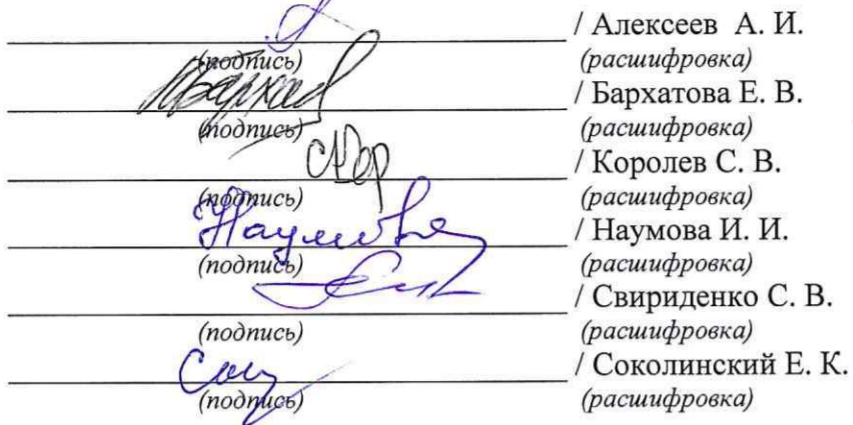 / Алексеев А. И.
(подпись) (расшифровка)
/ Бархатова Е. В.
(подпись) (расшифровка)
/ Королев С. В.
(подпись) (расшифровка)
Наумова / Наумова И. И.
(подпись) (расшифровка)
/ Свириденко С. В.
(подпись) (расшифровка)
/ Соколинский Е. К.
(подпись) (расшифровка)